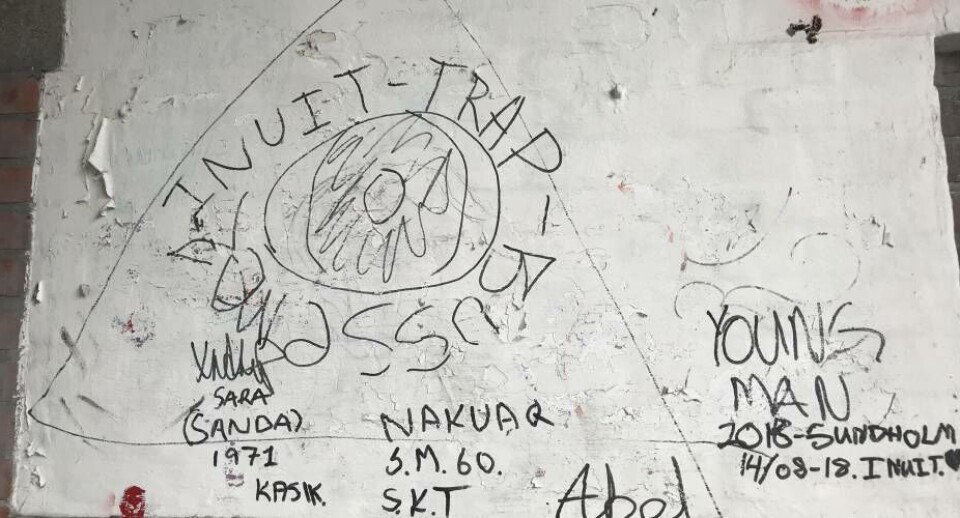 INUIT-TRAP-
SARA
(SANDA)
1971
KASIK.
NAKUAQ
S.M.60.
S.K.T
Abel
YOUNG
MAN
2018-SUNDHOLM
14/08-18. INUIT.♥